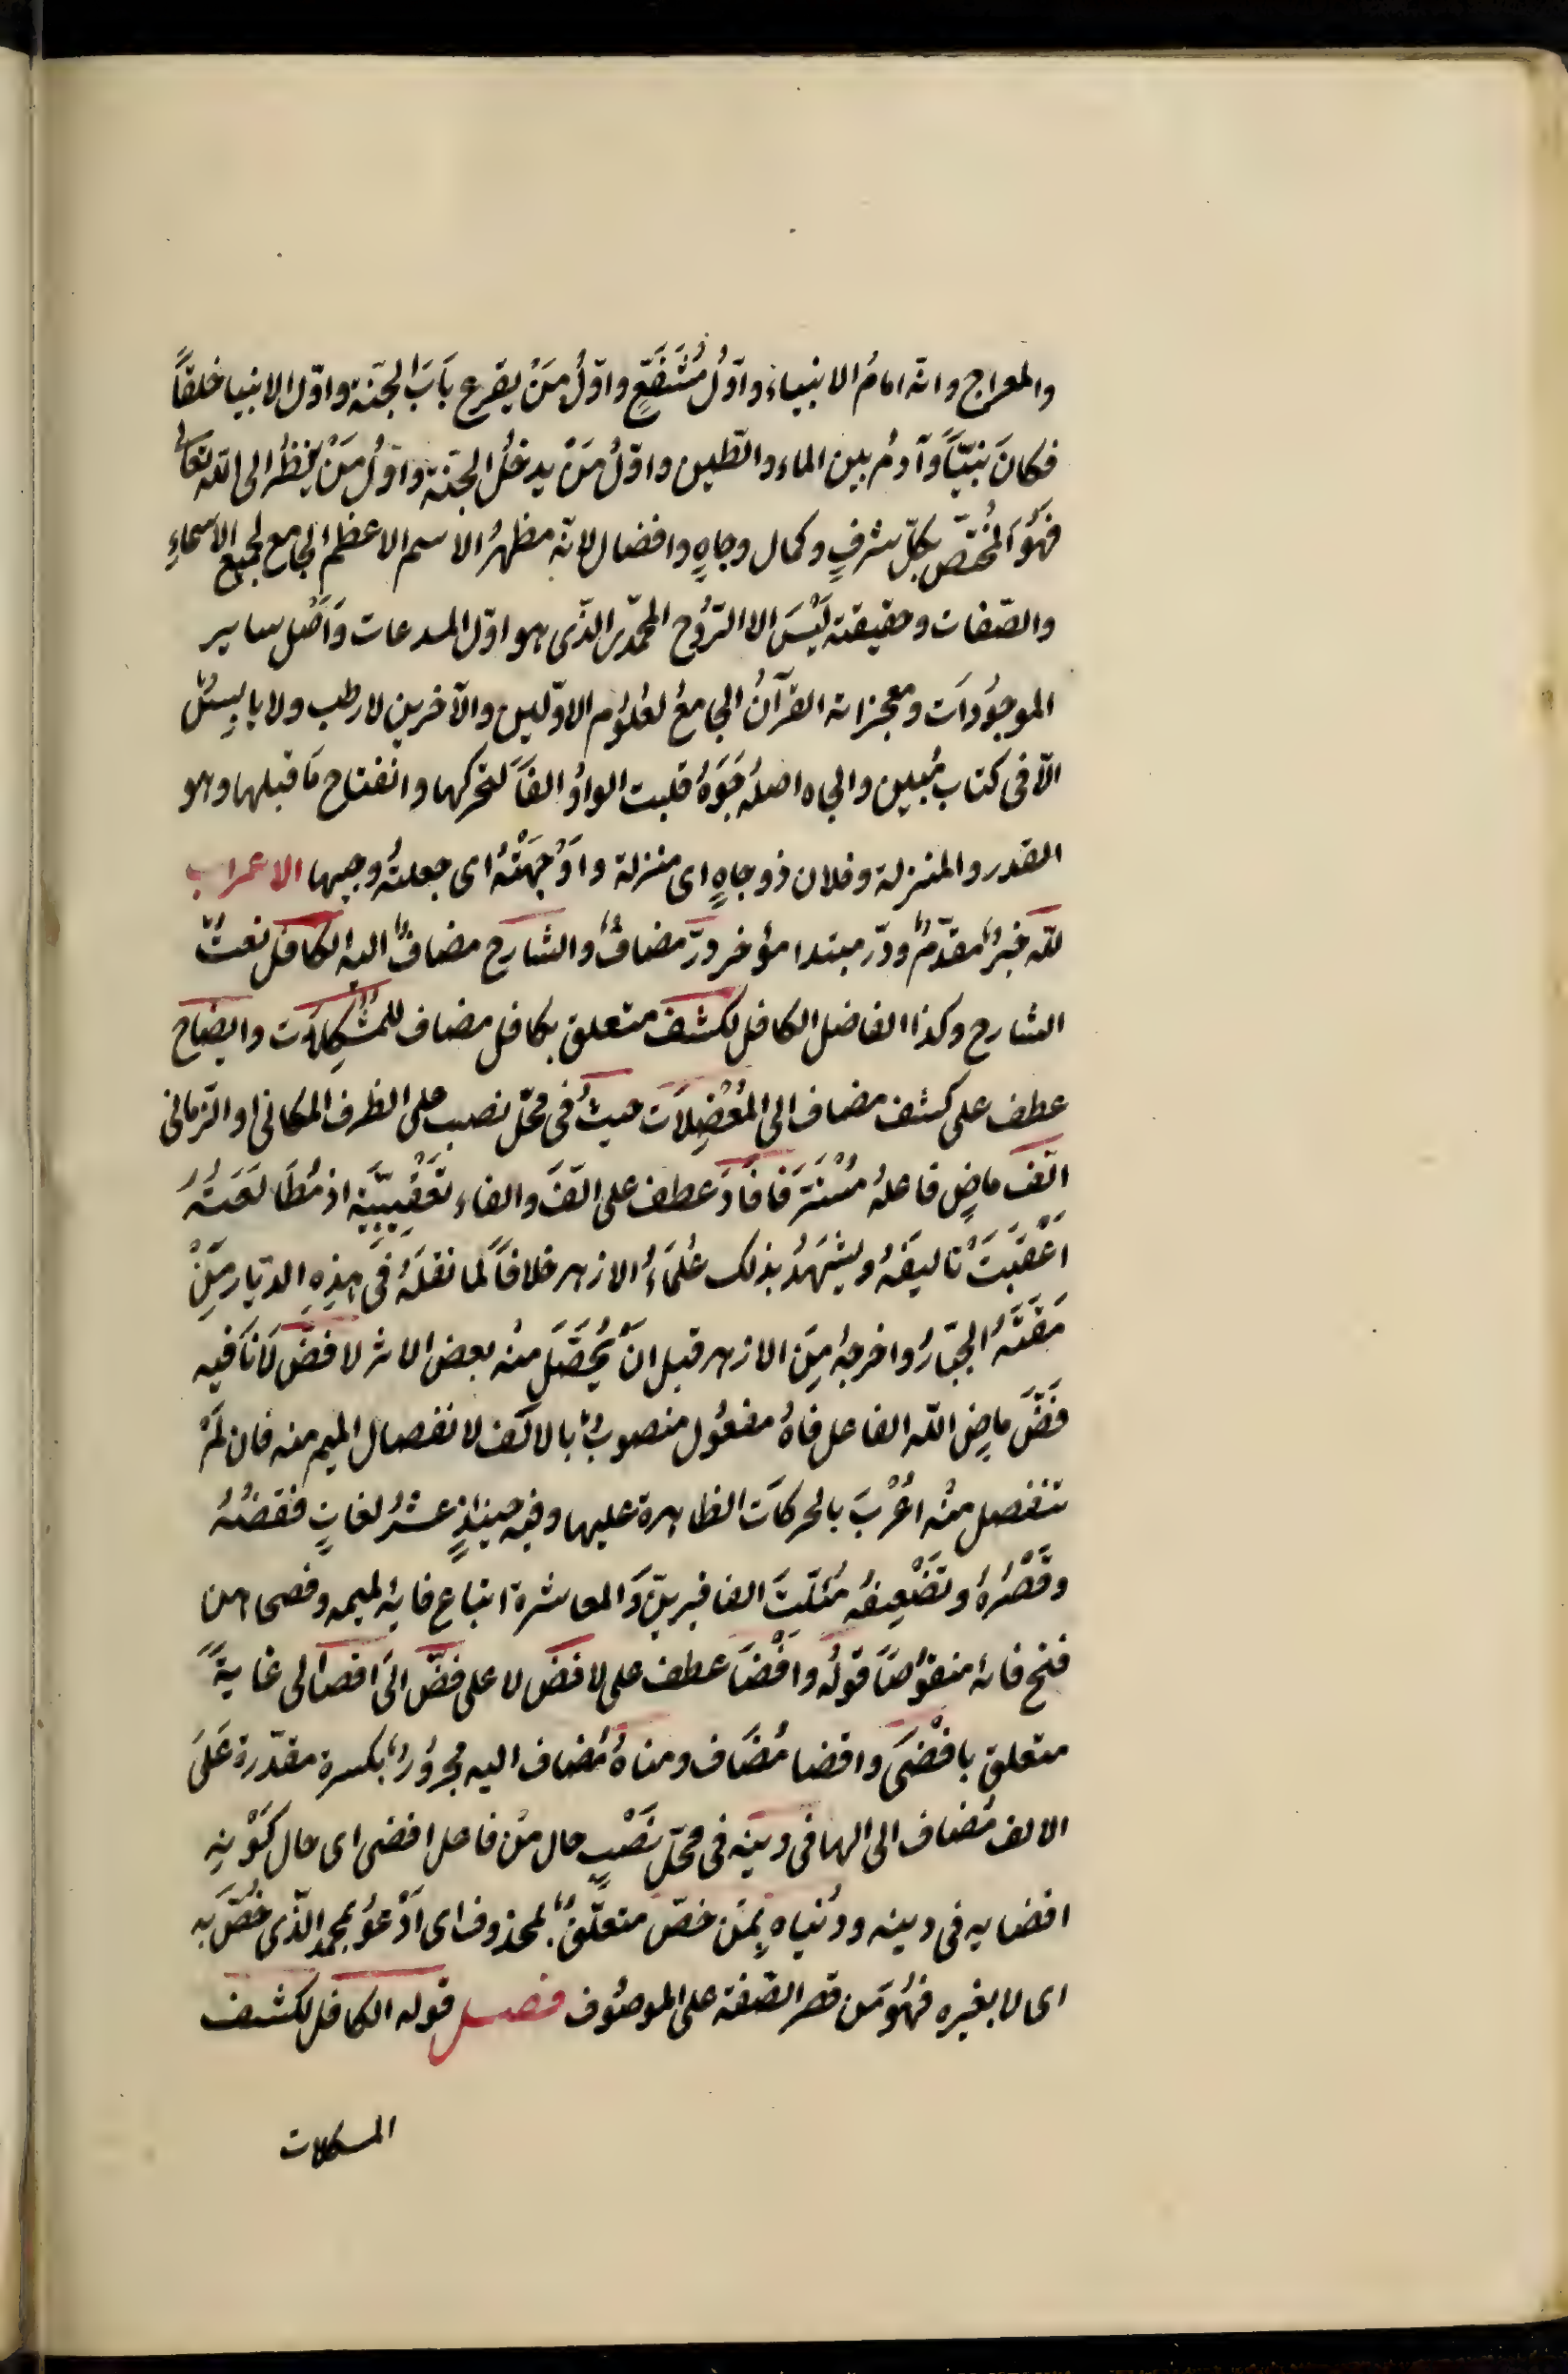 والمعراج وانه امامُ الانبياء واوّلُ مُشَفَّعٍ واوّلُ مَنْ يقرع بَابَ الجنّة واوّل الانبيا خلقاً
فكانَ نبيّاً وآدمُ بين الماء والطّين واوّلُ مَنْ يدخلُ الجنّة واوّلُ مَنْ ينظرُ الى الله تعالى
فهُوَ المُختصّ بكلّ شرفٍ وكمال وجاهٍ وافضال لانّه مظهرُ الاسم الاعظم الجامع لجميع الاسماءِ
والصّفات وحقيقته لَيْسَ الا الرّوح المحمّدى الذّى هو اوّل المبدعات وَاَصْل ساير
الموجُودَات ومعجزاته القرآنُ الجامعُ لعُلوُم الاوّلين والآخرين لا رطب ولا يابسٌ
الّا فى كتاب مُبين والجاه اصلُه جَوَهُ قلبت الواوُ الفاً لتحركها وانفتاح مَا قبلها وهو
القدر والمنزلة وفلان ذو جاهٍ اى منزلة واَوْجَهْتُهُ اى جعلتُه وجيها الاعراب
لله خبرٌ مقدّمٌ ودّر مبتدا مؤخر ودرّ مضافٌ والشارح مضافٌ اليه الكافل نعتُ
الشارح وكذا الفاضل الكافل لكشف متعلق بكافل مضاف للمُشْكِلاَت وايضاح
عطف على كشف مضاف الى المُعْضِلاَت حيثُ فى محّل نصب على الظرف المكانى او الزمانى
الّفَ ماضٍ فاعلهُ مُسْتَتَر فافَادَ عطف على الّفَ والفاء تَعْقِيبِيَّة اذ مُطَالَعَتُهُ
اَعْقَبَتْ تأليفَهُ ويشهَدُ بذلك عُلمَاءُ الازهر خلافاً لما نقلَهُ فى هذِهِ الديار مَنْ
مَقَتَهُ الجبّارُ واخرجهُ مِنَ الازهر قبل انْ يُحَصِّلَ منه بعض الاثر لا فضّ لَا نافيه
فَضَّ ماضِ الله الفاعل فاهُ مفعُول منصوبٌ بالالف لانفصال الميم منه فان لمْ
تنفصل منْه اُعْرْبَ بالحركاَت الظاهرة عليها وفيه حينئذٍ عشرُ لغاتٍ فنقصُهُ
وقَصْرُهُ وتَضْعِيفُه مُثلّثَ الفا فيهنّ وَالعاشرة اتباع فايهِ لميمه وفصحاهن
فتح فائه منقوُصاً قولُه وافْضَا عطف على لا فض لا على فضّ الَى اقصا لى غايةً
متعلق بافْضَى واقصا مُضَاف ومناهُ مُضاف اليه مجروُرٌ بكسرة مقدّرة عَلَى
الالف مُضاف الى الها فى دينه فى محّل نَصْبٍ حال منْ فاعل افضى اى حال كَوْنِهِ
افضا به فى دينه ودُنياه بِمَن خصّ متعلّقٌ بمحذوف اى اَدْعوُ بمحمد الذّى خُصَّ به
اى لا بغيره فهُوَ مَن قصر الصّفة على الموصُوف فصل قوله الكافل لكشف
المشكلات